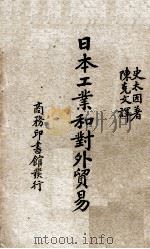 史末因著
陳克文譯
日本工業和對外貿易
商務印書館發行